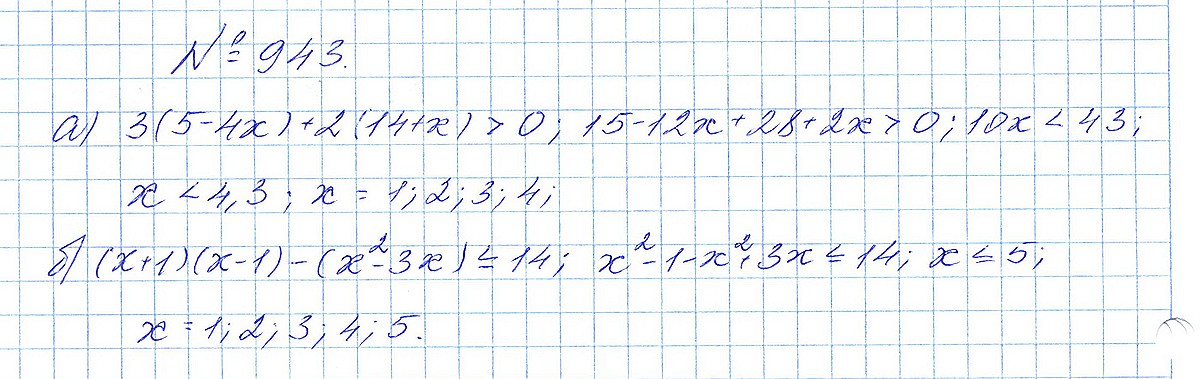 № 943.
а) 3(5-4x)+2(14+x)>0; 15-12x+28+2x>0; 10x<43;
x<4,3; x=1;2;3;4;
б) (x+1)(x-1)-(x²-3x)≤14; x²-1-x²+3x≤14; x≤5;
x=1;2;3;4;5.